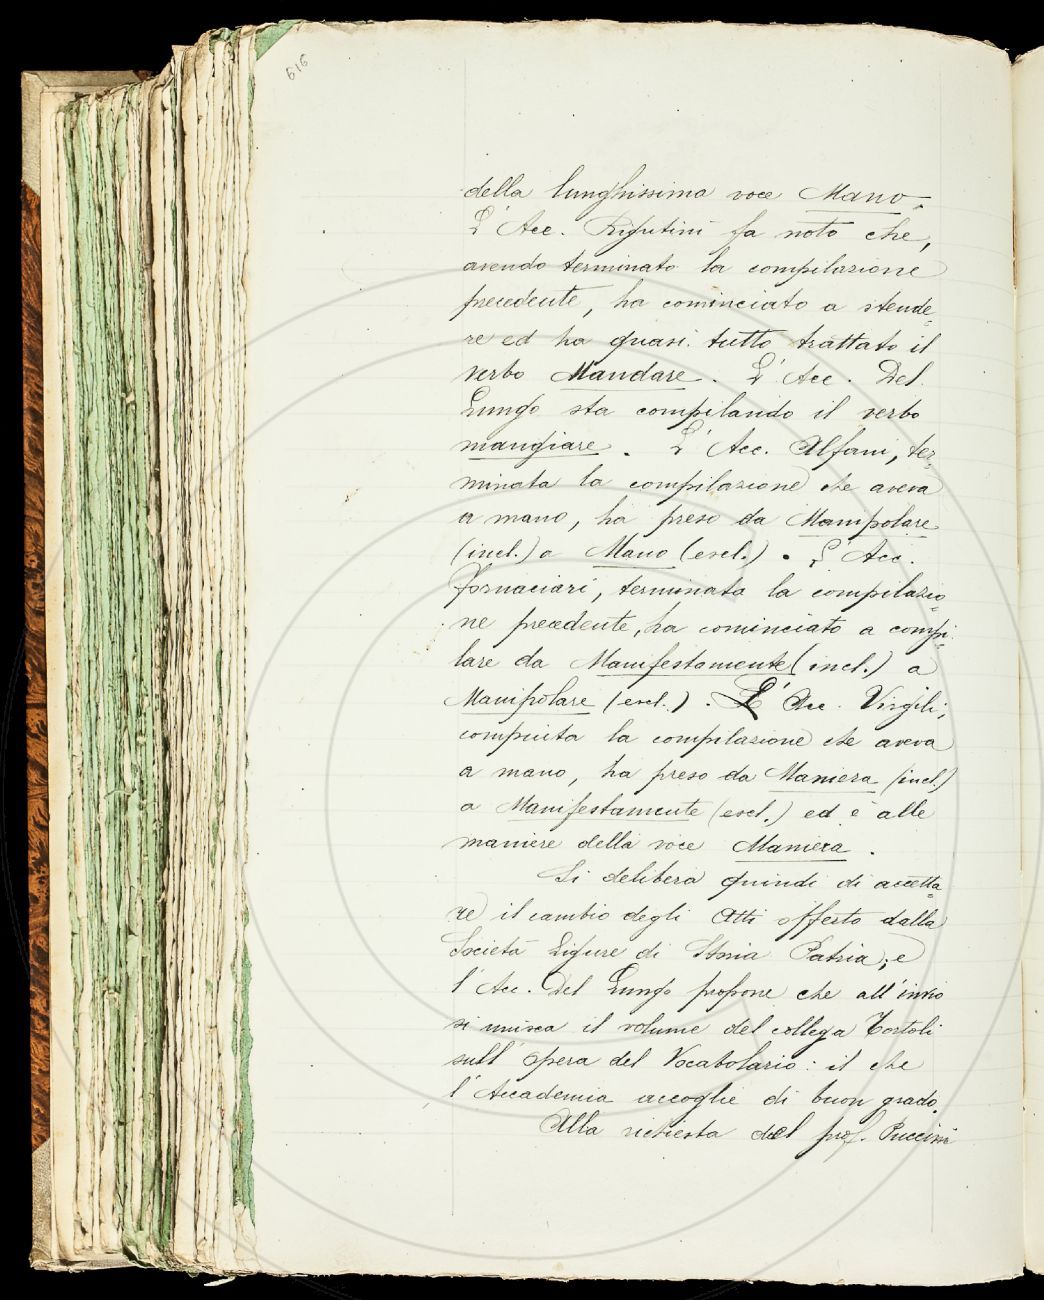 616
della lunghissima voce Mano.
L'Acc. Rigutini fa noto che,
avendo terminato la compilazione
precedente, ha cominciato a stende-
re ed ha quasi tutto trattato il
verbo Mandare. L'Acc. Del
Lungo sta compilando il verbo
mangiare. L'Acc. Alfani, ter-
minata la compilazione che aveva
a mano, ha preso da Manipolare
(incl.) a Mano (escl.). L'Acc.
Fornaciari, terminata la compilazio-
ne precedente, ha cominciato a compi-
lare da Manifestamente (incl.) a
Manipolare (escl.). L'Acc. Virgili,
compiuta la compilazione che aveva
a mano, ha preso da Maniera (incl.)
a Manifestamente (escl.) ed è alle
maniere della voce Maniera.
Si delibera quindi di accetta-
re il cambio degli Atti offerto dalla
Società Ligure di Storia Patria; e
l'Acc. Del Lungo propone che all'invio
si unisca il volume del collega Tortoli
sull'opera del Vocabolario: il che
l'Accademia accoglie di buon grado.
Alla richiesta del prof. Puccini